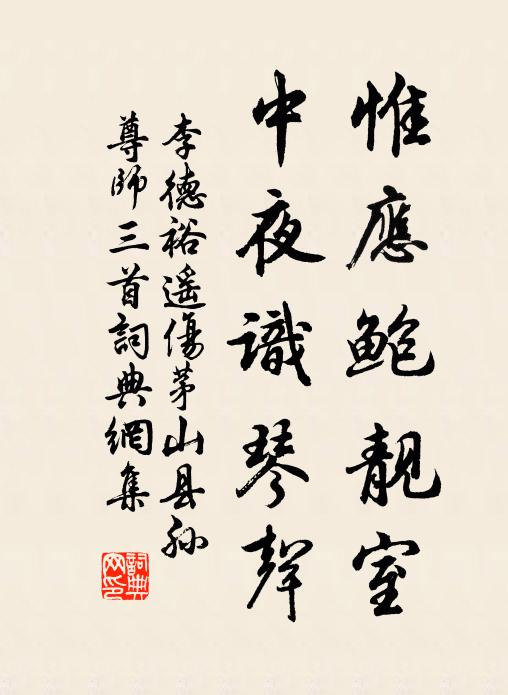 惟應鮑靚室
中夜識琴聲
李德裕遥傷茅山县孙
尊师三首詞典網集
詞典网印